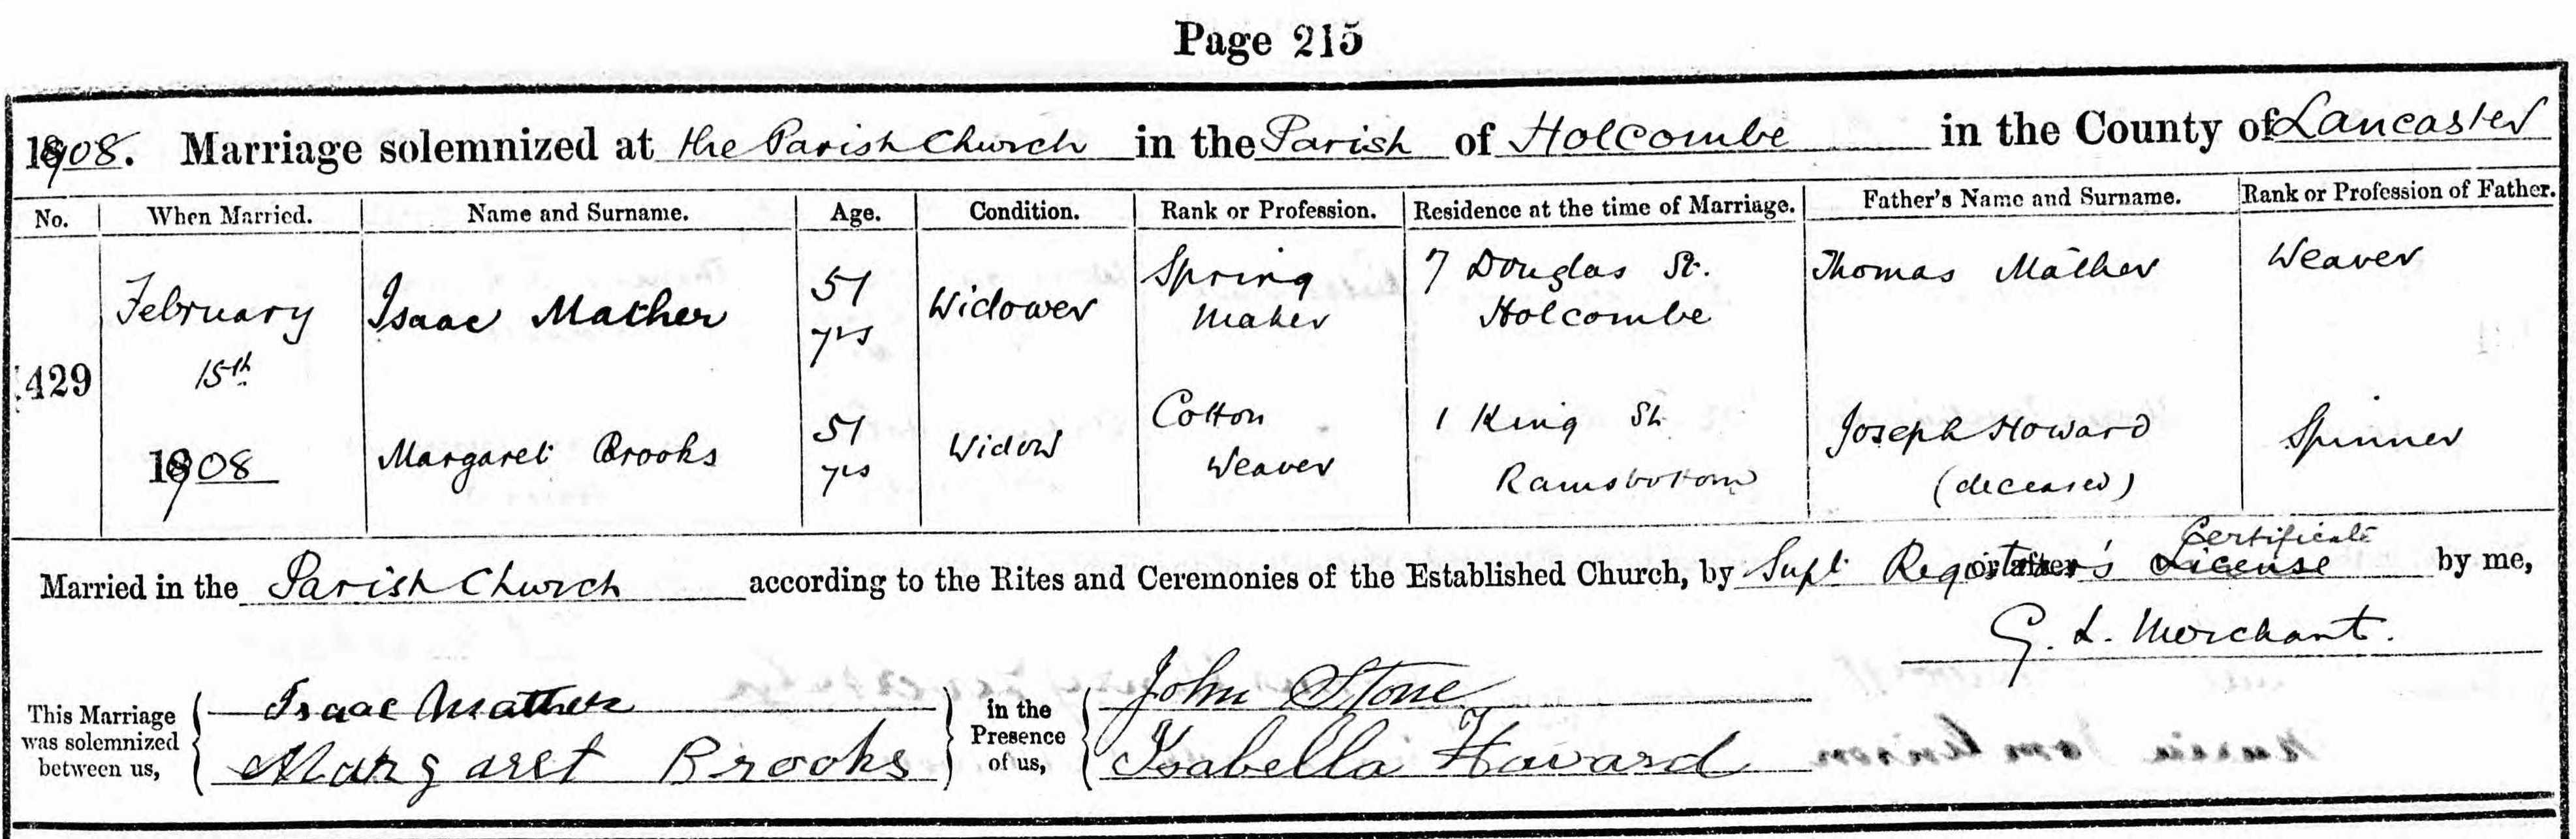 Page 215
1908. Marriage solemnized at the Parish Church in the Parish of Holcombe in the County of Lancaster
No. When Married. Name and Surname. Age. Condition. Rank or Profession. Residence at the time of Marriage. Father's Name and Surname. Rank or Profession of Father.
429
February
15th
1908
Isaac Mather
51
yrs
Widower
Spring
Maker
7 Douglas St.
Holcombe
Thomas Mather
Weaver
Margaret Brooks
51
yrs
Widow
Cotton
Weaver
1 King St.
Ramsbottom
Joseph Howard
(deceased)
Spinner
Certificate
Married in the Parish Church according to the Rites and Ceremonies of the Established Church, by Supt. Registrar's License by me,
G. L. Merchant.
This Marriage
was solemnized
between us,
Isaac Mather
Margaret Brooks
in the
Presence
of us,
John Stone
Isabella Howard